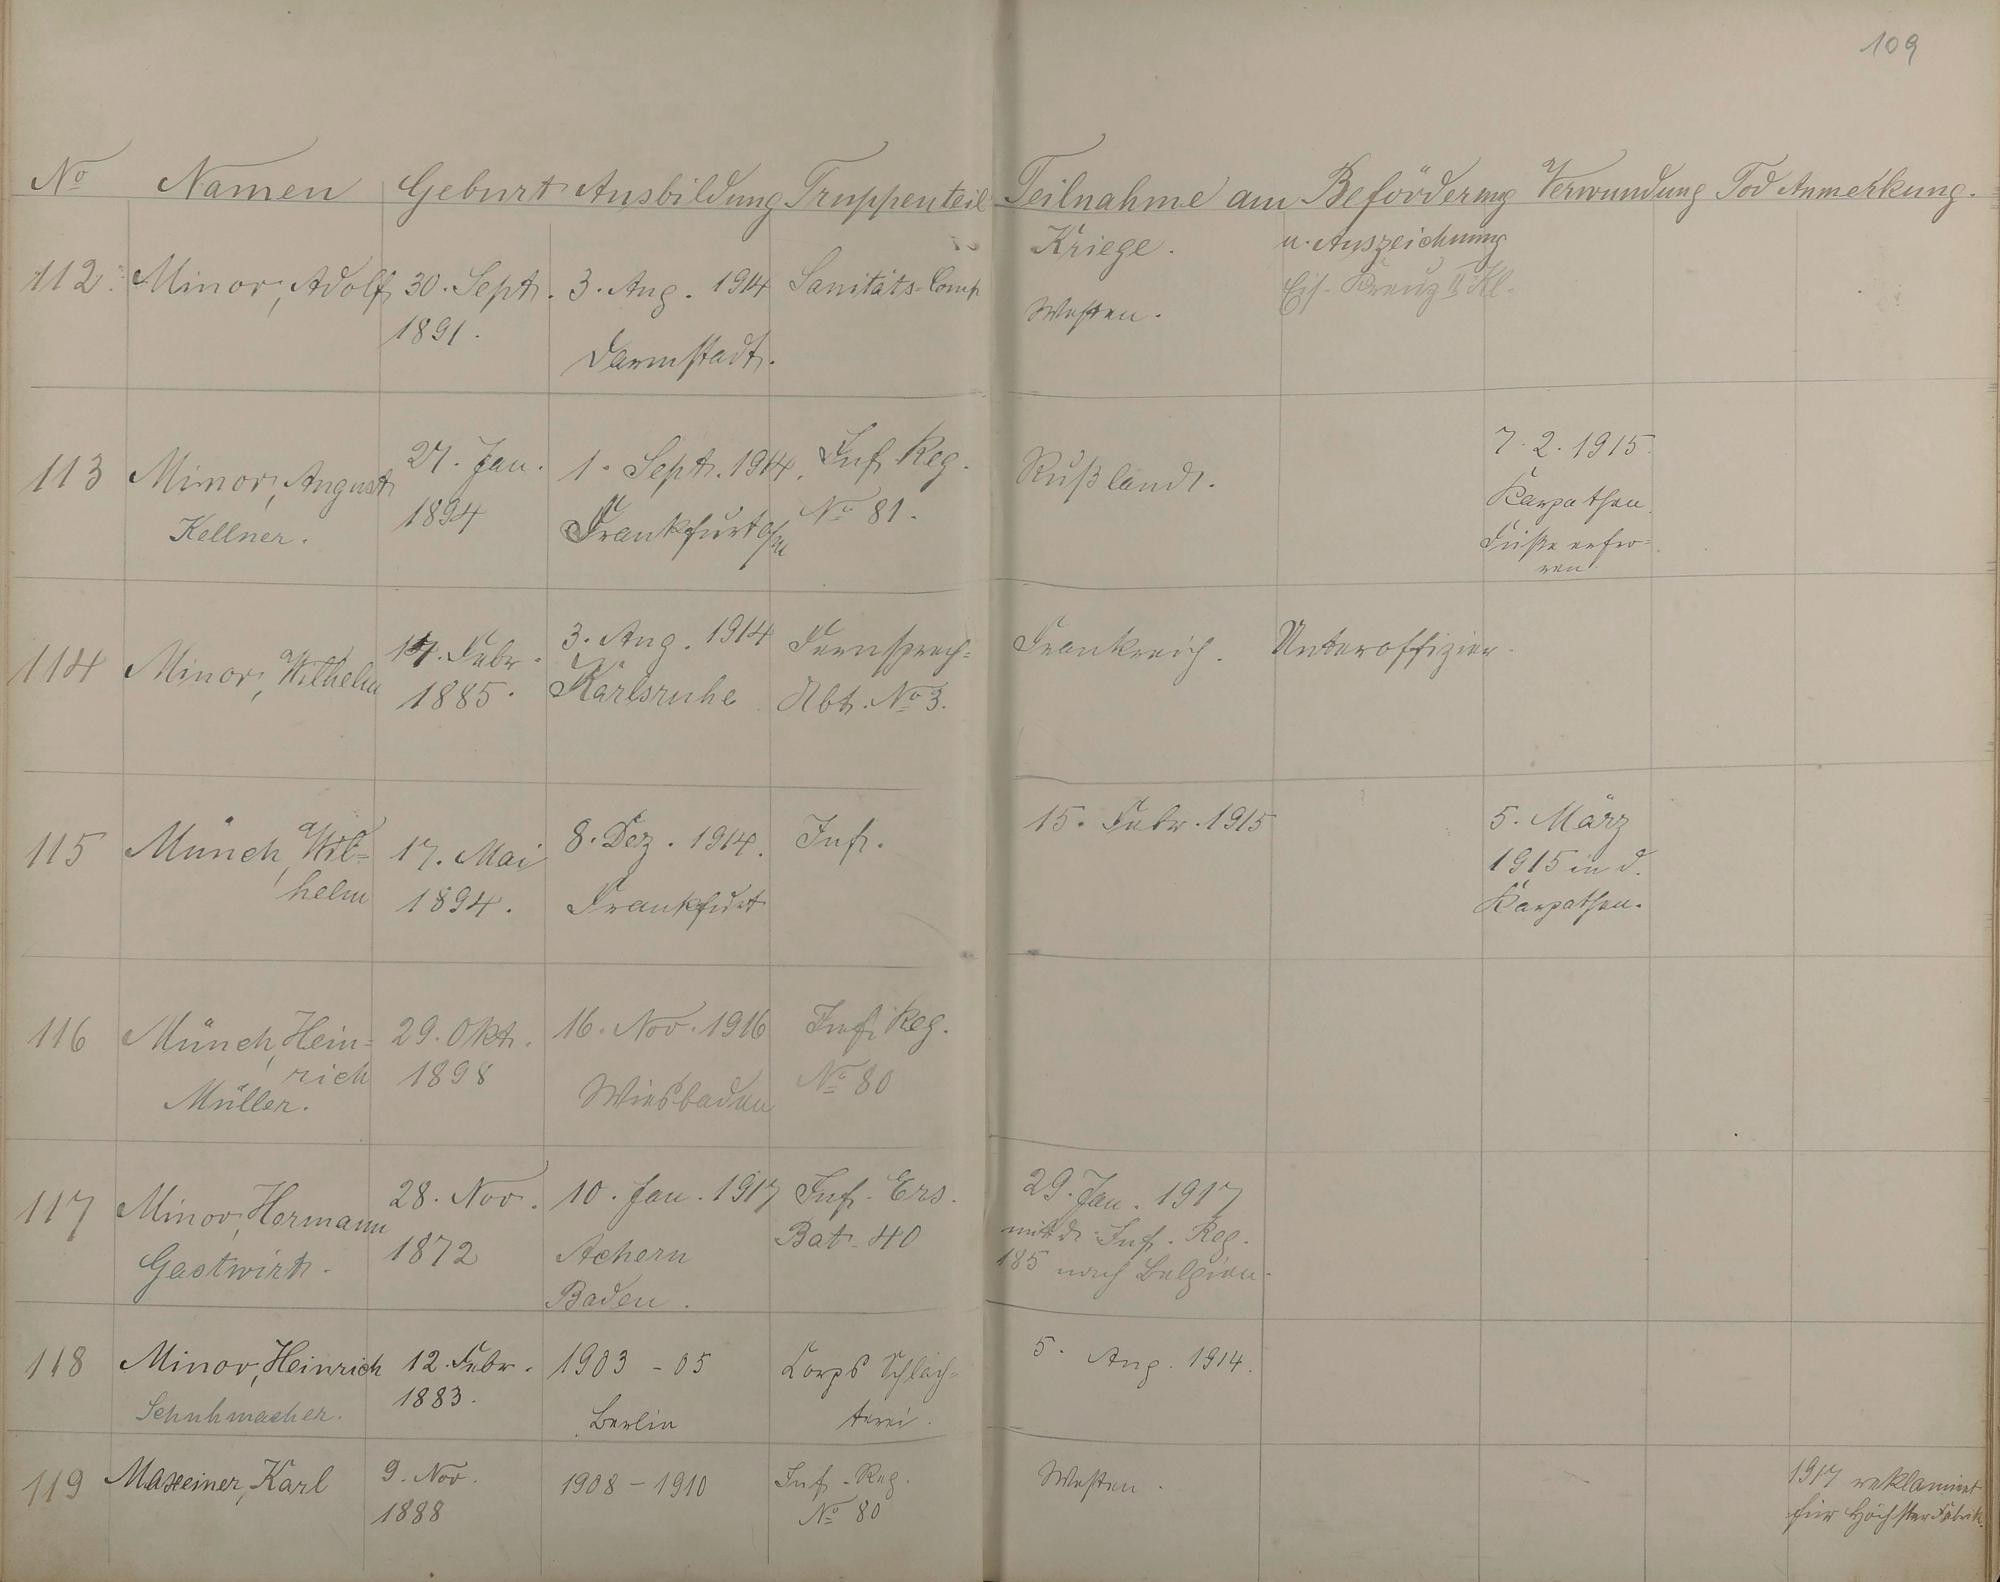 109
No Namen Geburt Ausbildung Truppenteil Teilnahme am Beförderung Verwundung Tod Anmerkung.
Kriege. u. Auszeichnung
112. Minor, Adolf 30. Sept. 3. Aug. 1914 Sanitäts-Comp Eis. Kreuz II Kl.
1891. Westen.
Darmstadt.
113 Minor, August 27. Jan. 1. Sept. 1914. Inf. Reg. Rußland. 7. 2. 1915
Kellner. 1894 Frankfurt a/M No 81. Karpathen.
Füße erfro=
ren
114 Minor, Wilhelm 14. Febr. 3. Aug. 1914 Fernsprech= Frankreich. Unteroffizier.
1885. Karlsruhe Abt. No 3.
115 Münch, Wil= 17. Mai 8. Dez. 1914. Inf. 15. Febr. 1915 5. März
helm 1894. Frankfurt 1915 in d.
Karpathen.
116 Münch, Hein= 29. Okt. 16. Nov. 1916 Inf. Reg.
rich 1898 Wiesbaden No 80
Müller.
117 Minor, Hermann 28. Nov. 10. Jan. 1917 Inf. Ers. 29. Jan. 1917
Gastwirt. 1872 Achern Bat. 40 mit d. Inf. Reg.
Baden. 185 nach Belgien.
118 Minor, Heinrich 12. Febr. 1903 - 05 Corps Schläch= 5. Aug. 1914.
Schuhmacher. 1883. Berlin terei.
119 Maxeiner, Karl 9. Nov. 1908 - 1910 Inf. Reg. Westen. 1917 reklamiert
1888 No 80 für Höchster Fabrik.